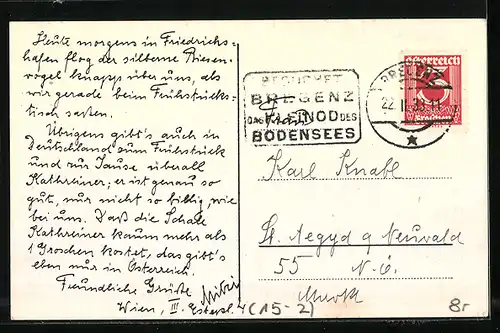 Heute morgens in Friedrichs-
hafen flog der silberne Riesen-
vogel knapp über uns, als
wir gerade beim Frühstücks-
tisch saßen.
Übrigens gibt's auch in
Deutschland zum Frühstück
und zur Jause überall
Kathreiner; er ist genau so
gut, nur nicht so billig wie
bei uns. Daß die Schale
Kathreiner kaum mehr als
1 Groschen kostet, das gibt's
eben nur in Österreich.
Freundliche Grüße
Wien, III.
BESUCHET
BREGENZ
DAS KLEINOD DES
BODENSEES
BREGENZ
22. II
Österreich
3
Groschen
Karl Knabl
St. Aegyd a Neuwald
55 N.Ö.
(15-2)
8r